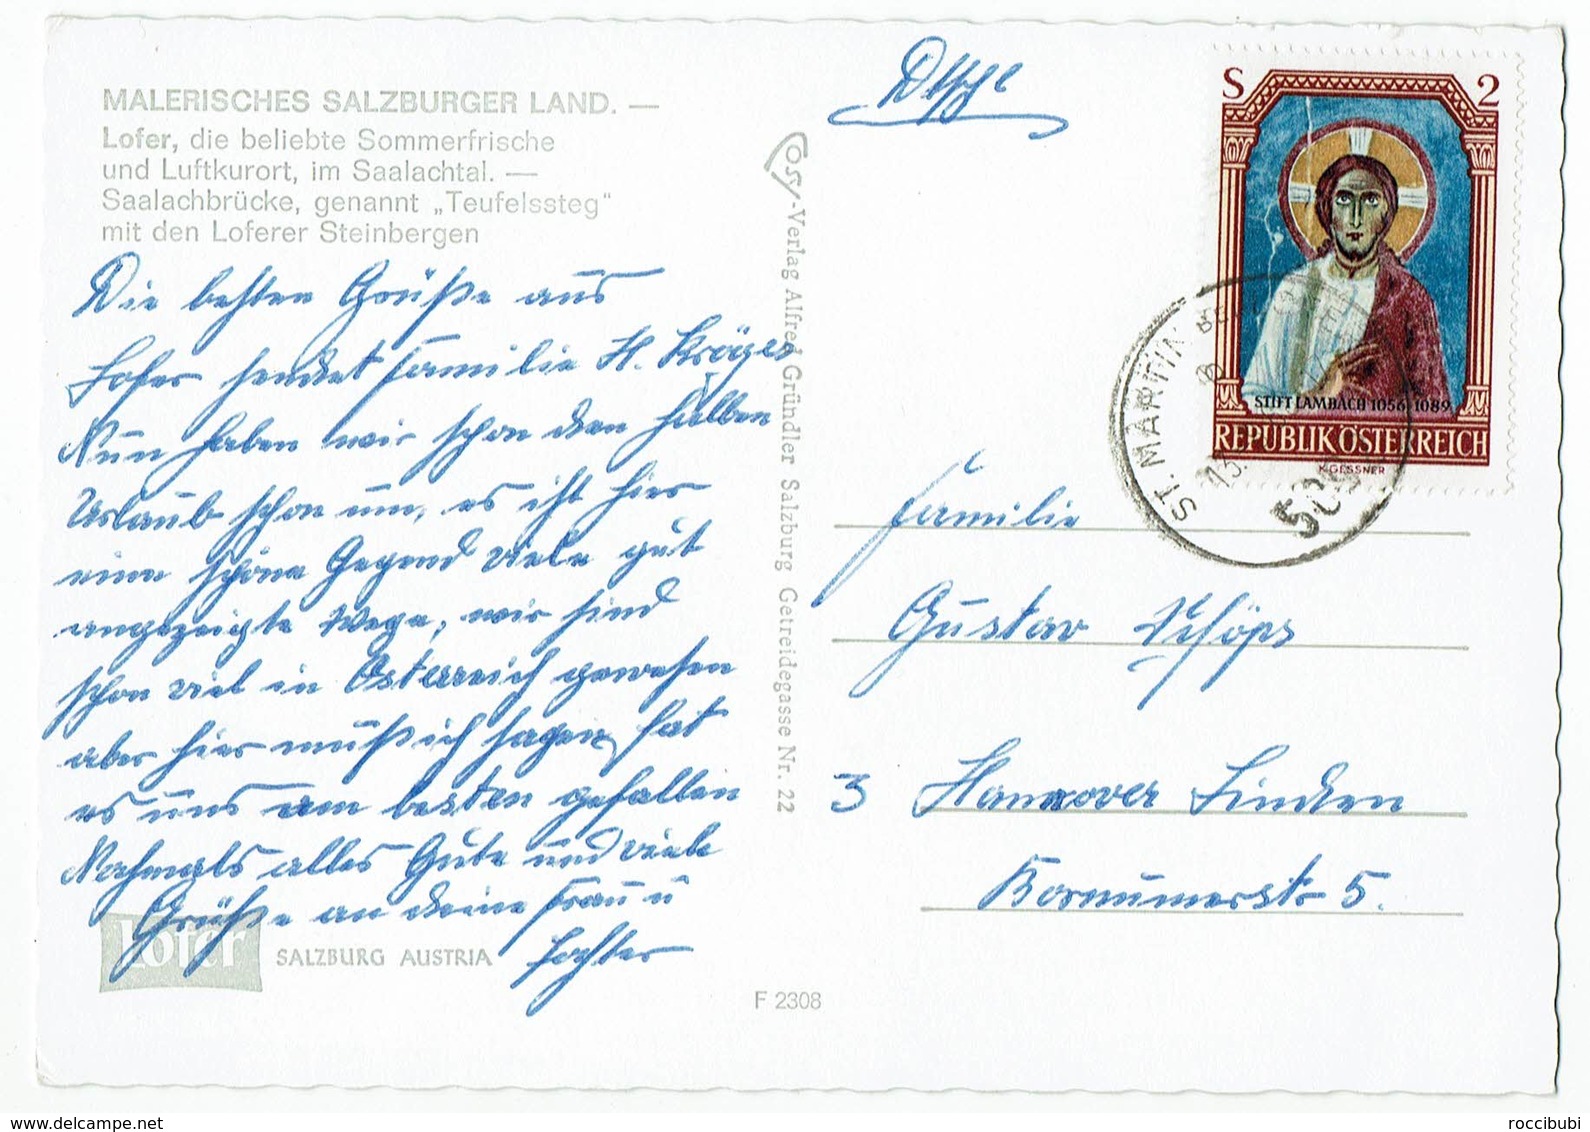 MALERISCHES SALZBURGER LAND. —
Lofer, die beliebte Sommerfrische
und Luftkurort, im Saalachtal. —
Saalachbrücke, genannt „Teufelssteg"
mit den Loferer Steinbergen
Die besten Grüße aus
Lofer sendet Familie H. Kröger
Nun haben wir schon den halben
Urlaub schon um, es ist hier
eine schöne Gegend viele gut
angezeigte Wege, wir sind
schon viel in Österreich gewesen
aber hier muß ich sagen hat
es uns am besten gefallen
Nochmals alles Gute und viele
Grüße an deine Frau u
Tochter
lofer SALZBURG AUSTRIA
Ossy-Verlag Alfred Gründler Salzburg Getreidegasse Nr. 22
F 2308
Dtschl
S 2
STIFT LAMBACH 1056 1089
REPUBLIK ÖSTERREICH
K. GESSNER
ST. MARTIN
13.
509
Familie
Gustav
3 Hannover Linden
Bornumerstr 5.
roccibubi